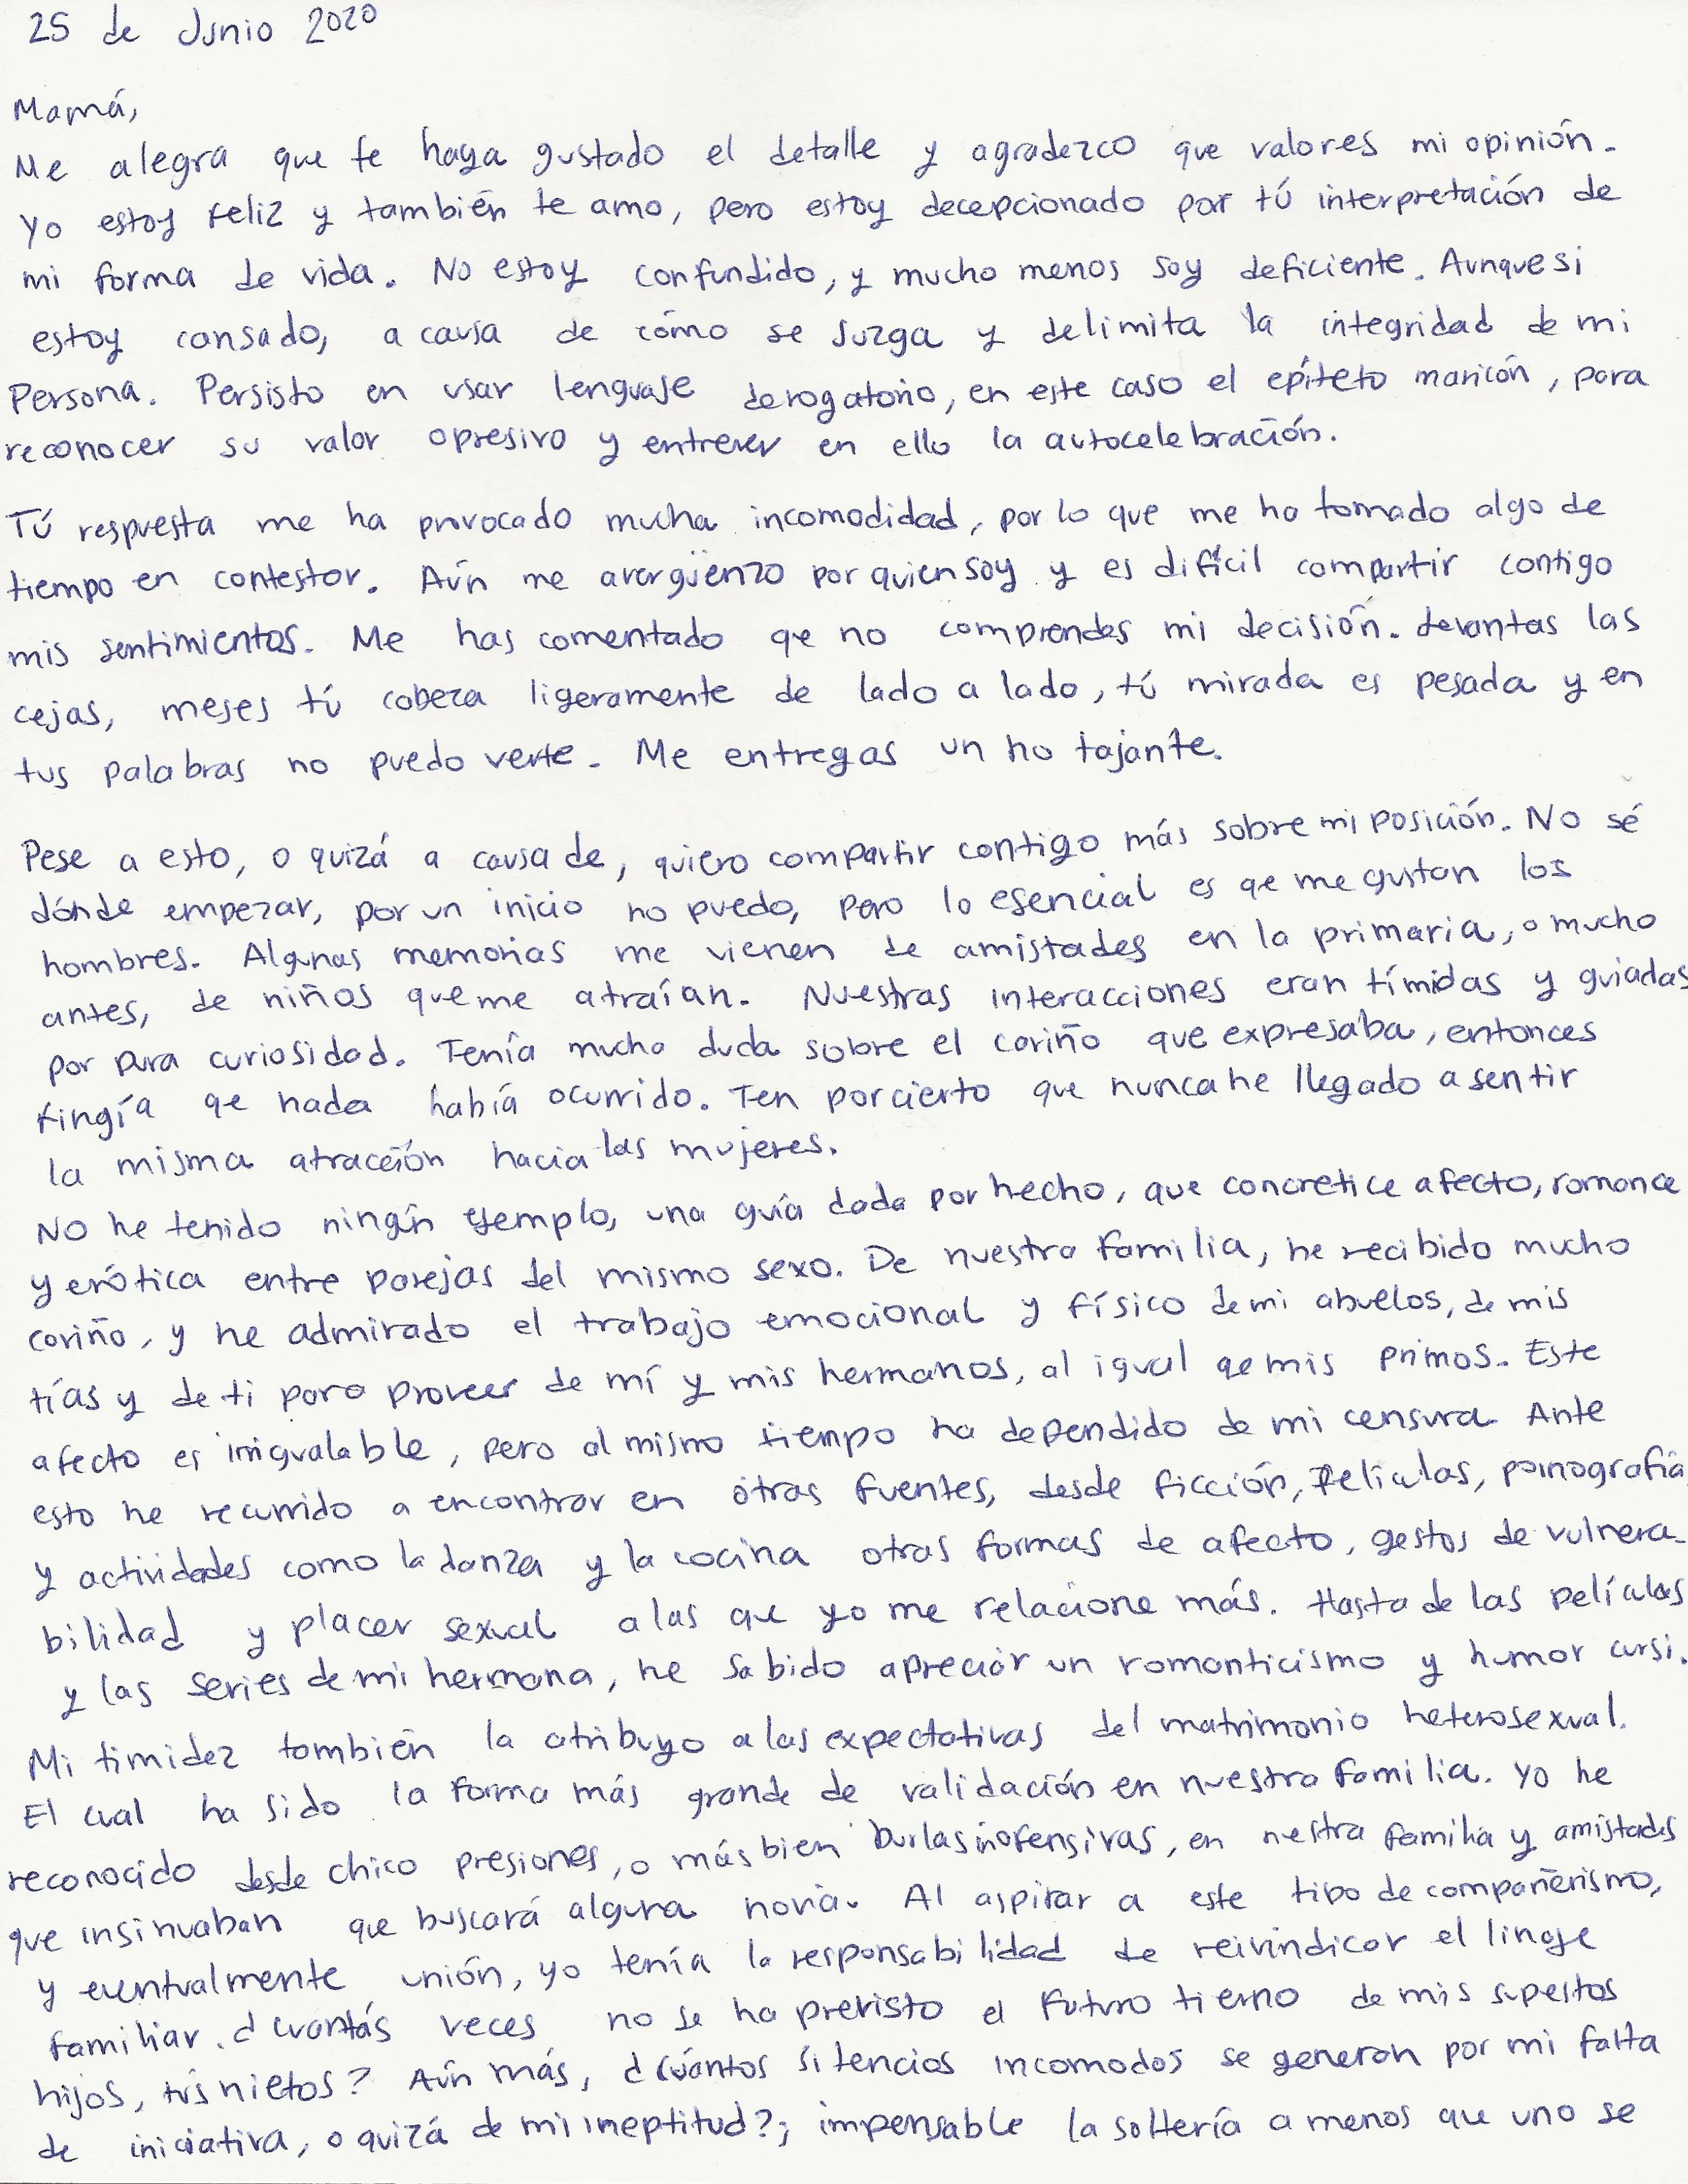 25 de Junio 2020
Mamá,
Me alegra que te haya gustado el detalle y agradezco que valores mi opinión.
Yo estoy feliz y también te amo, pero estoy decepcionado por tú interpretación de
mi forma de vida. No estoy confundido, y mucho menos soy deficiente. Aunque si
estoy cansado, a causa de cómo se juzga y delimita la integridad de mi
Persona. Persisto en usar lenguaje derogatorio, en este caso el epíteto maricón, para
reconocer su valor opresivo y entrever en ello la autocelebración.
Tú respuesta me ha provocado mucha incomodidad, por lo que me ha tomado algo de
tiempo en contestar. Aún me avergüenzo por quien soy y es difícil compartir contigo
mis sentimientos. Me has comentado qe no comprendes mi decisión. Levantas las
cejas, meses tú cabeza ligeramente de lado a lado, tú mirada es pesada y en
tus palabras no puedo verte. Me entregas un no tajante.
Pese a esto, o quizá a causa de, quiero compartir contigo más sobre mi posición. No sé
dónde empezar, por un inicio no puedo, pero lo esencial es qe me gustan los
hombres. Algunas memorias me vienen de amistades en la primaria, o mucho
antes, de niños que me atraían. Nuestras interacciones eran tímidas y guiadas
por pura curiosidad. Tenía mucha duda sobre el cariño que expresaba, entonces
fingía qe nada había ocurrido. Ten por cierto que nunca he llegado a sentir
la misma atracción hacia las mujeres.
No he tenido ningún ejemplo, una guía dada por hecho, que concretice afecto, romance
y erótica entre parejas del mismo sexo. De nuestra familia, he recibido mucho
cariño, y he admirado el trabajo emocional y físico de mi abuelos, de mis
tías y de ti para proveer de mí y mis hermanos, al igual qe mis primos. Este
afecto es inigualable, pero al mismo tiempo ha dependido de mi censura. Ante
esto he recurrido a encontrar en otras fuentes, desde ficción, películas, pornografía
y actividades como la danza y la cocina otras formas de afecto, gestos de vulnera-
bilidad y placer sexual a las que yo me relacione más. Hasta de las películas
y las series de mi hermana, he sabido apreciar un romanticismo y humor cursi.
Mi timidez también la atribuyo a las expectativas del matrimonio heterosexual.
El cual ha sido la forma más grande de validación en nuestra familia. Yo he
reconocido desde chico presiones, o más bien burlas inofensivas, en nestra familia y amistades
que insinuaban que buscará alguna novia. Al aspirar a este tipo de compañerismo,
y eventualmente unión, yo tenía la responsabilidad de reivindicar el linaje
familiar. ¿Cuantás veces no se ha previsto el futuro tierno de mis supestos
hijos, tus nietos? Aún más, ¿cuántos silencios incomodos se generan por mi falta
de iniciativa, o quizá de mi ineptitud?; impensable la soltería a menos que uno se